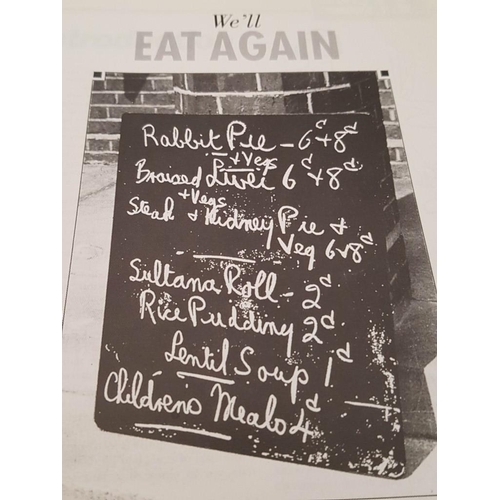 We'll
EAT AGAIN
Rabbit Pie - 6d + 8d
+ Vegs
Braised Liver 6d + 8d
+ Vegs
Steak & Kidney Pie +
Veg 6 + 8d
Sultana Roll - 2d
Rice Pudding 2d
Lentil Soup 1d
Childrens Meals 4d